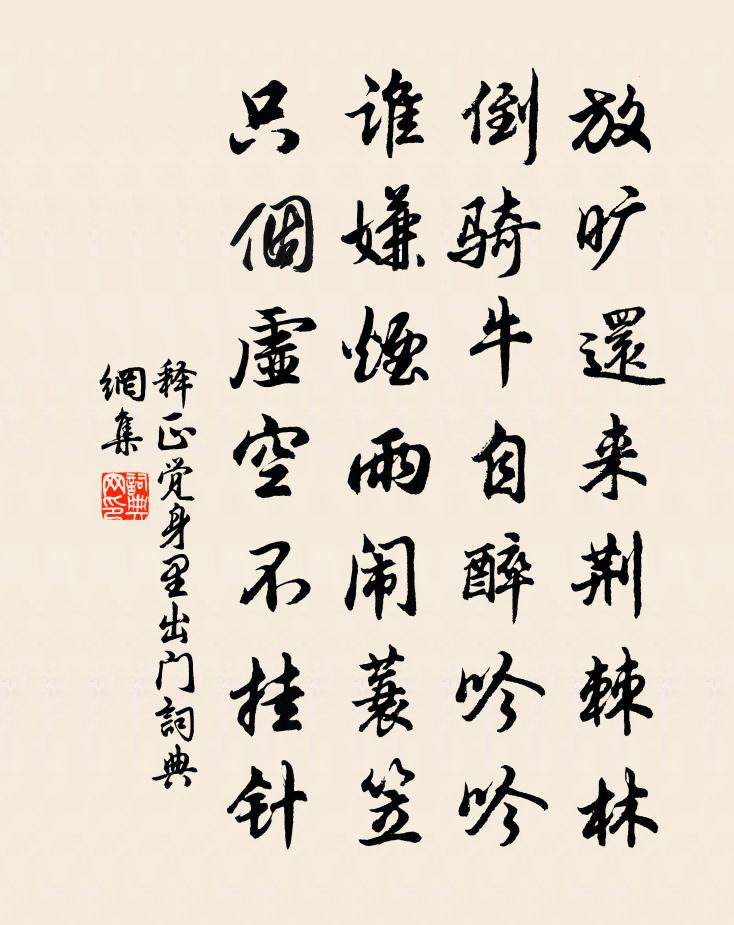 放旷還来荆棘林
倒骑牛自醉吟吟
谁嫌煙雨闹蓑笠
只個虛空不挂针
释正觉身里出门詞典
網集
詞典
网印